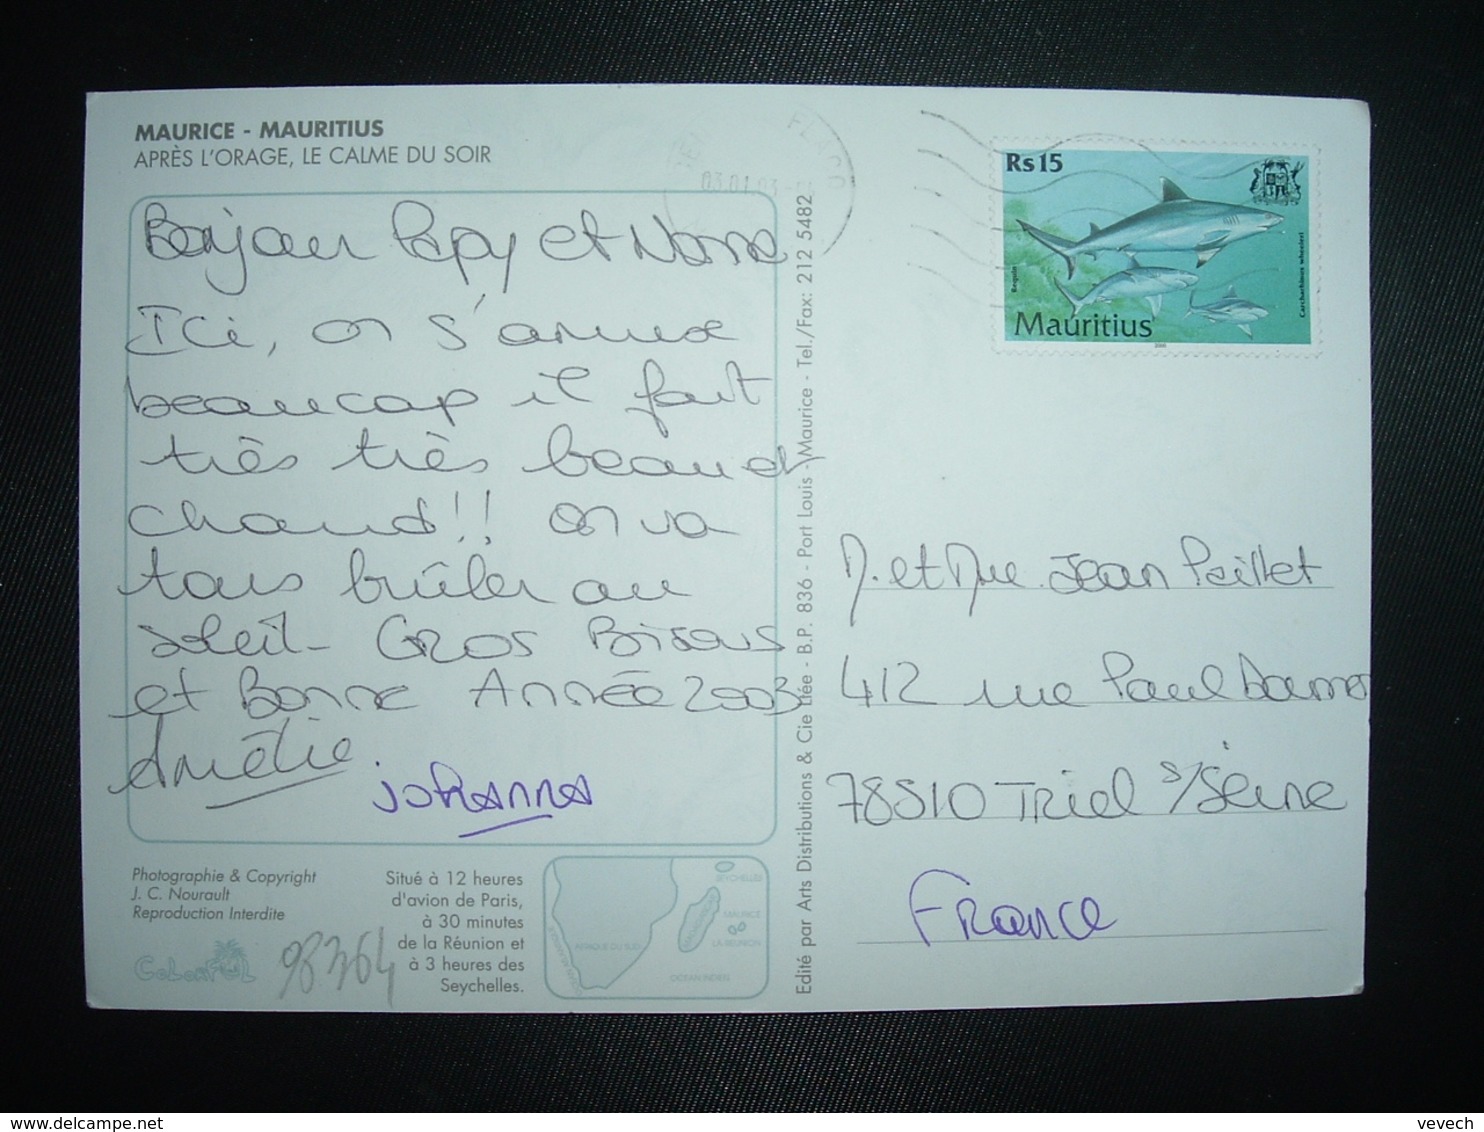 MAURICE - MAURITIUS
APRÈS L'ORAGE, LE CALME DU SOIR
Bonjour Papy et Nonna
Ici, on s'amuse
beaucoup il fait
très très beau et
chaud!! on va
tous brûler au
soleil- Gros Bisous
et Bonne Année 2003
Amélie.
JOHANNA
Photographie & Copyright
J. C. Nourault
Reproduction Interdite
COLORFUL
98364
Situé à 12 heures
d'avion de Paris,
à 30 minutes
de la Réunion et
à 3 heures des
Seychelles.
SEYCHELLES
MADAGASCAR
MAURICE
LA REUNION
AFRIQUE DU SUD
OCEAN INDIEN
Edité par Arts Distributions & Cie Ltée - B.P. 836 - Port Louis - Maurice - Tel./Fax: 212 5482
FLACQ
03.01.03
Rs15
Requin
Carcharhinus wheeleri
Mauritius
2000
M. et Mme Jean Paillet
412 rue Paul Doumer
78510 Triel s/Seine
France
vevech